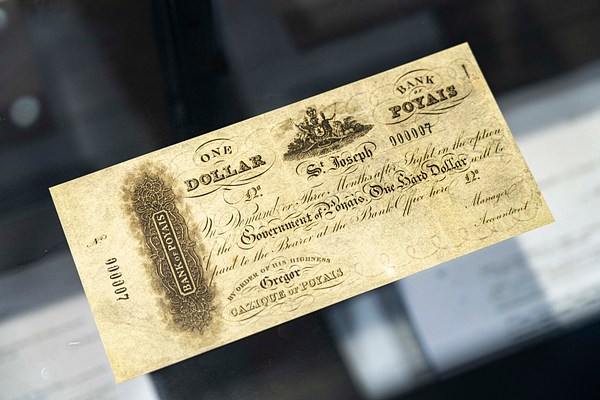 ONE
DOLLAR
BANK
OF
POYAIS
St. Joseph
000007
On Demand or Three Months after Sight on the option
of the Government of Poyais, One Hard Dollar will be
paid to the Bearer at the Bank Office here
Manager
Accountant
BY ORDER OF HIS HIGHNESS
Gregor
CAZIQUE OF POYAIS
BANK OF POYAIS
No
000007